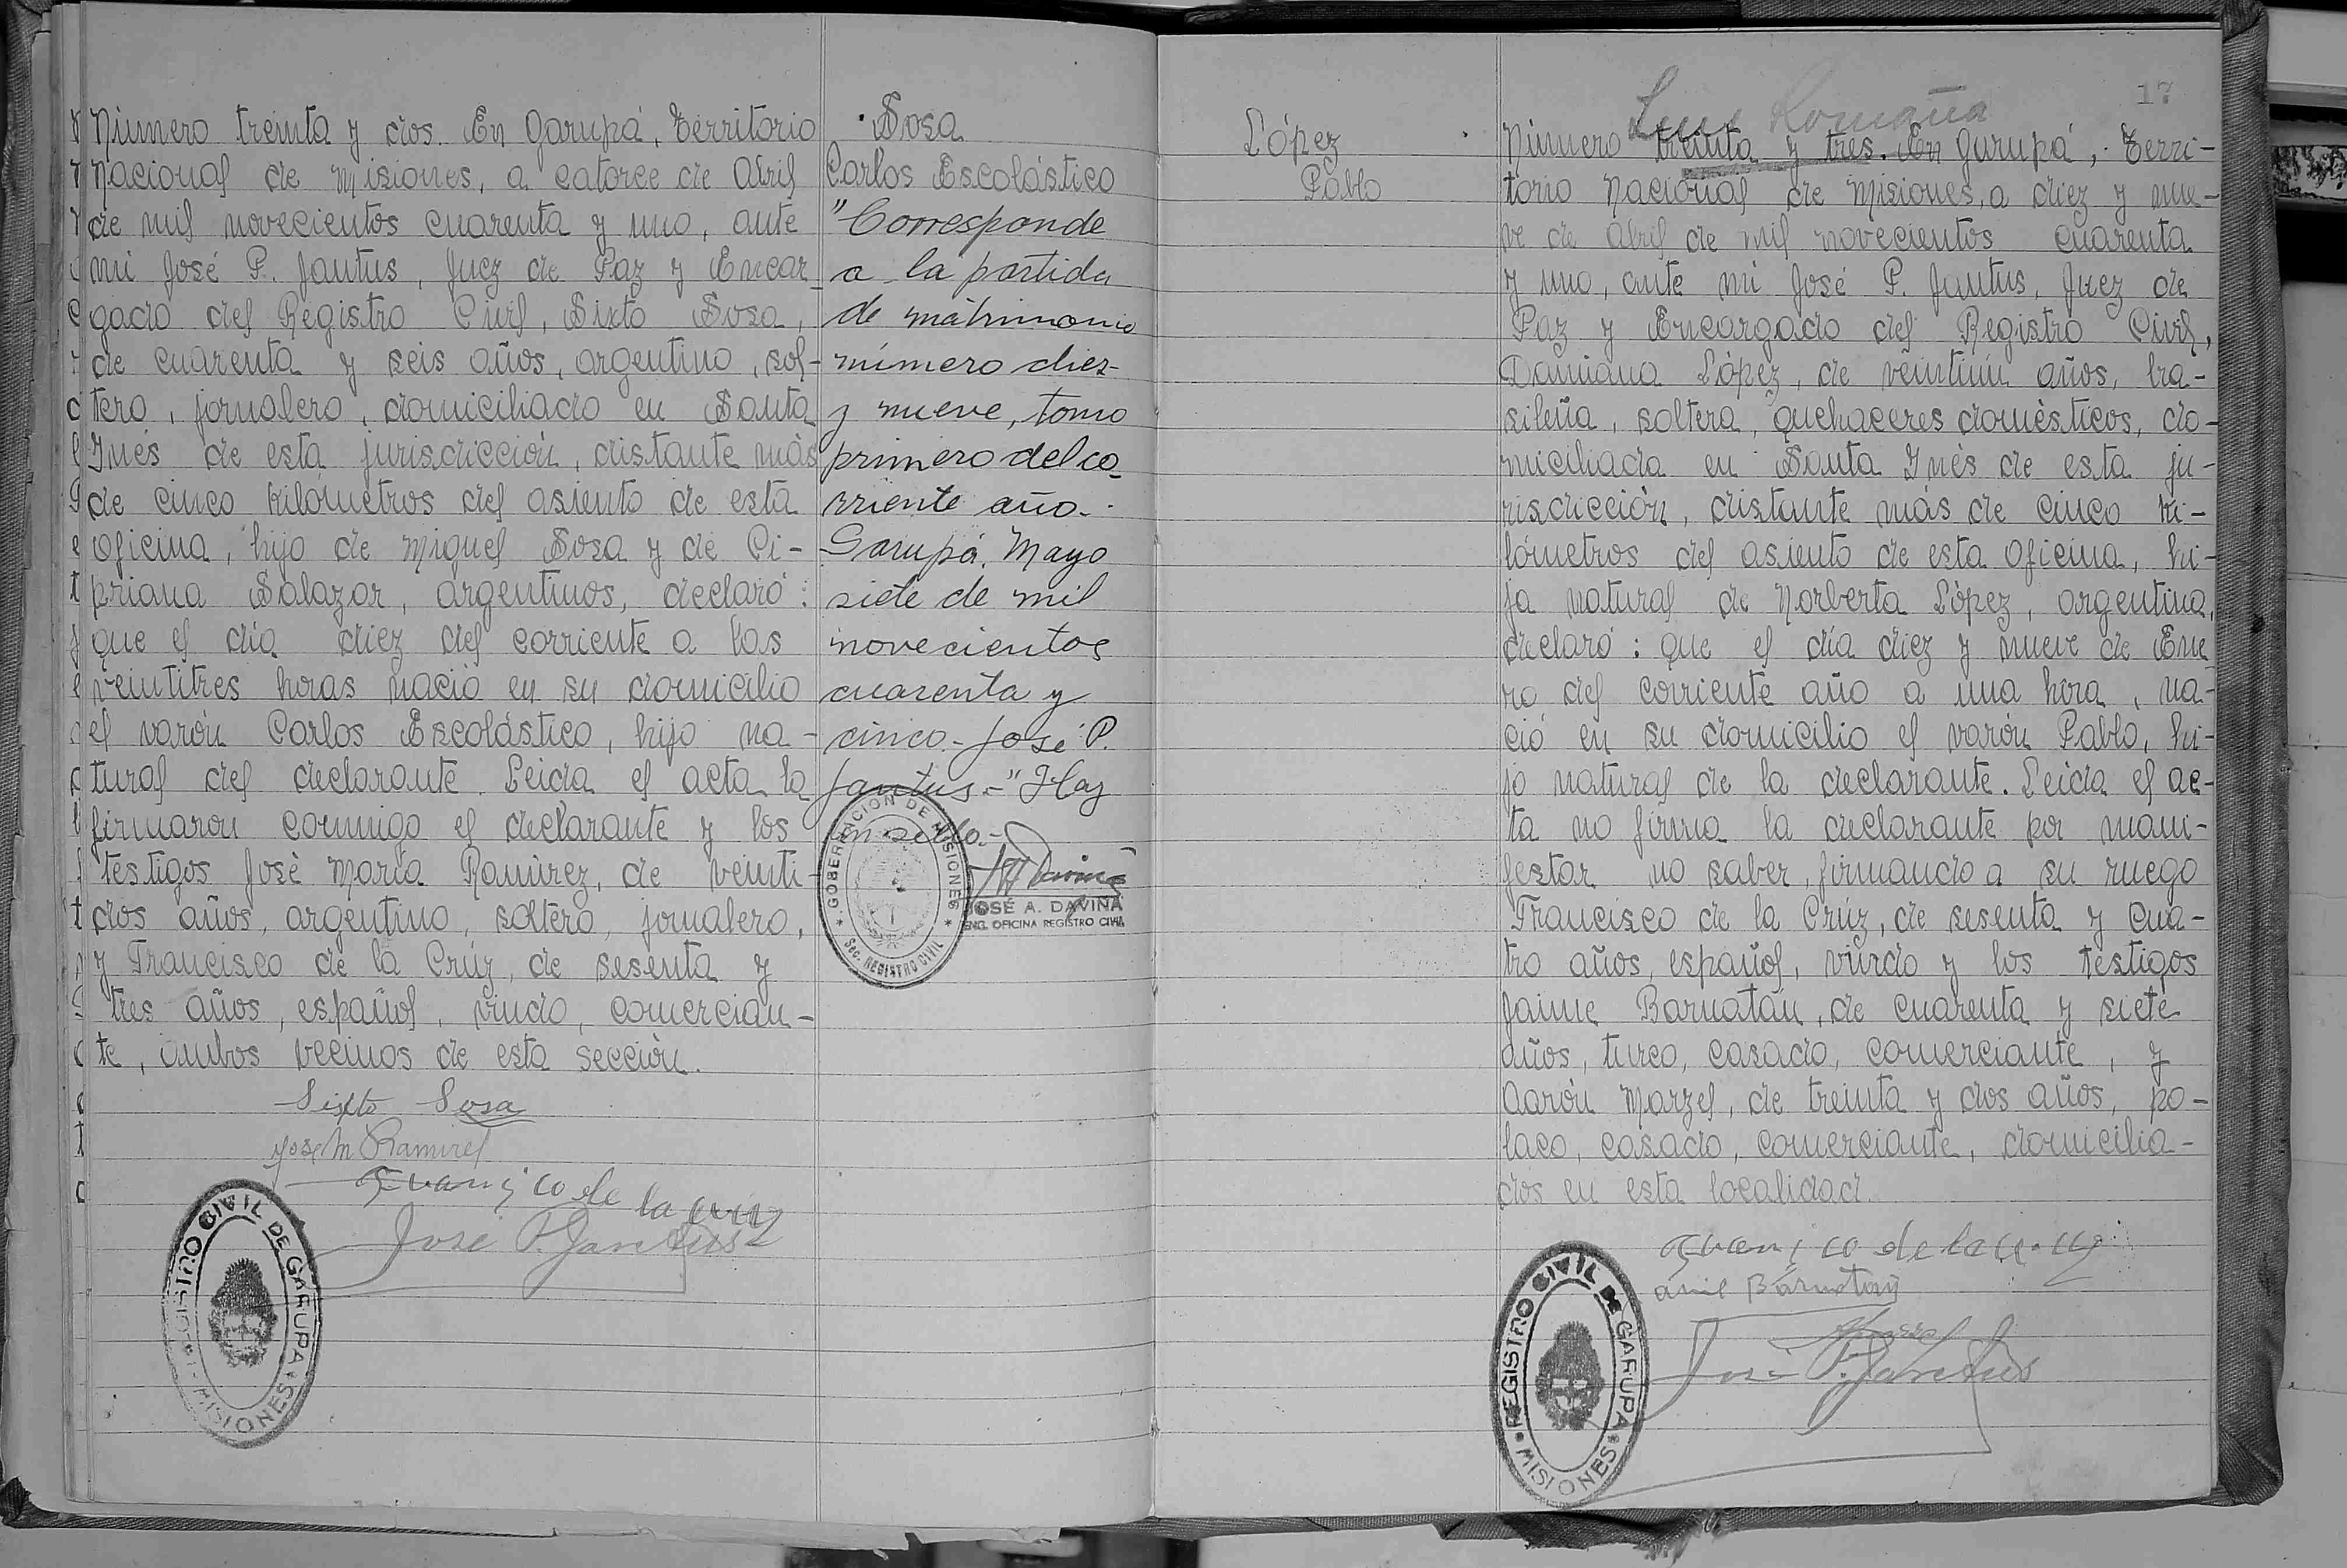 Número treinta y dos. En Garupá, Territorio
Nacional de Misiones, a catorce de Abril
de mil novecientos cuarenta y uno, ante
mi José P. Jantus, Juez de Paz y Encar-
gado del Registro Civil, Sixto Sosa,
de cuarenta y seis años, argentino, sol-
tero, jornalero, domiciliado en Santa
Inés de esta jurisdicción, distante más
de cinco kilómetros del asiento de esta
oficina, hijo de Miguel Sosa y de Ci-
priana Salazar, argentinos, declaró:
que el día diez del corriente a las
veintitres horas nació en su domicilio
el varón Carlos Escolástico, hijo na-
tural del declarante. Leida el acta la
firmaron conmigo el declarante y los
testigos José María Ramírez, de veinti-
dos años, argentino, soltero, jornalero,
y Francisco de la Crúz, de sesenta y
tres años, español, viudo, comercian-
te, ambos vecinos de esta sección.
Sixto Sosa
José M Ramirez
Francisco de la cruz
José P. Jantus
REGISTRO CIVIL DE GARUPA
MISIONES
Sosa
Carlos Escolástico
"Corresponde
a la partida
de matrimonio
número diez
y nueve, tomo
primero del co-
rriente año.-
Garupá, Mayo
siete de mil
novecientos
cuarenta y
cinco.- José P.
Jantus.-" Hay
un sello.-
GOBERNACION DE MISIONES
Sec. REGISTRO CIVIL
JOSÉ A. DAVIÑA
ENC. OFICINA REGISTRO CIVIL
López
Pablo
17
Luis Romaña
Número treinta y tres. En Garupá, Terri-
torio Nacional de Misiones, a diez y nue-
ve de Abril de mil novecientos cuarenta
y uno, ante mi José P. Jantus, Juez de
Paz y Encargado del Registro Civil,
Damiana López, de veintiún años, bra-
sileña, soltera, quehaceres domésticos, do-
miciliada en Santa Inés de esta ju-
risdicción, distante más de cinco ki-
lómetros del asiento de esta Oficina, hi-
ja natural de Norberta López, argentina,
declaró: que el día diez y nueve de Ene
ro del corriente año a una hora, na-
ció en su domicilio el varón Pablo, hi-
jo natural de la declarante. Leida el ac-
ta no firma la declarante por mani-
festar no saber, firmando a su ruego
Francisco de la Crúz, de sesenta y cua-
tro años, español, viudo y los testigos
Jaime Barnatán, de cuarenta y siete
años, turco, casado, comerciante, y
Aarón Marzel, de treinta y dos años, po-
laco, casado, comerciante, domicilia-
dos en esta localidad.
Francisco de la cruz
Barnatán
José P. Jantus
REGISTRO CIVIL DE GARUPA
MISIONES